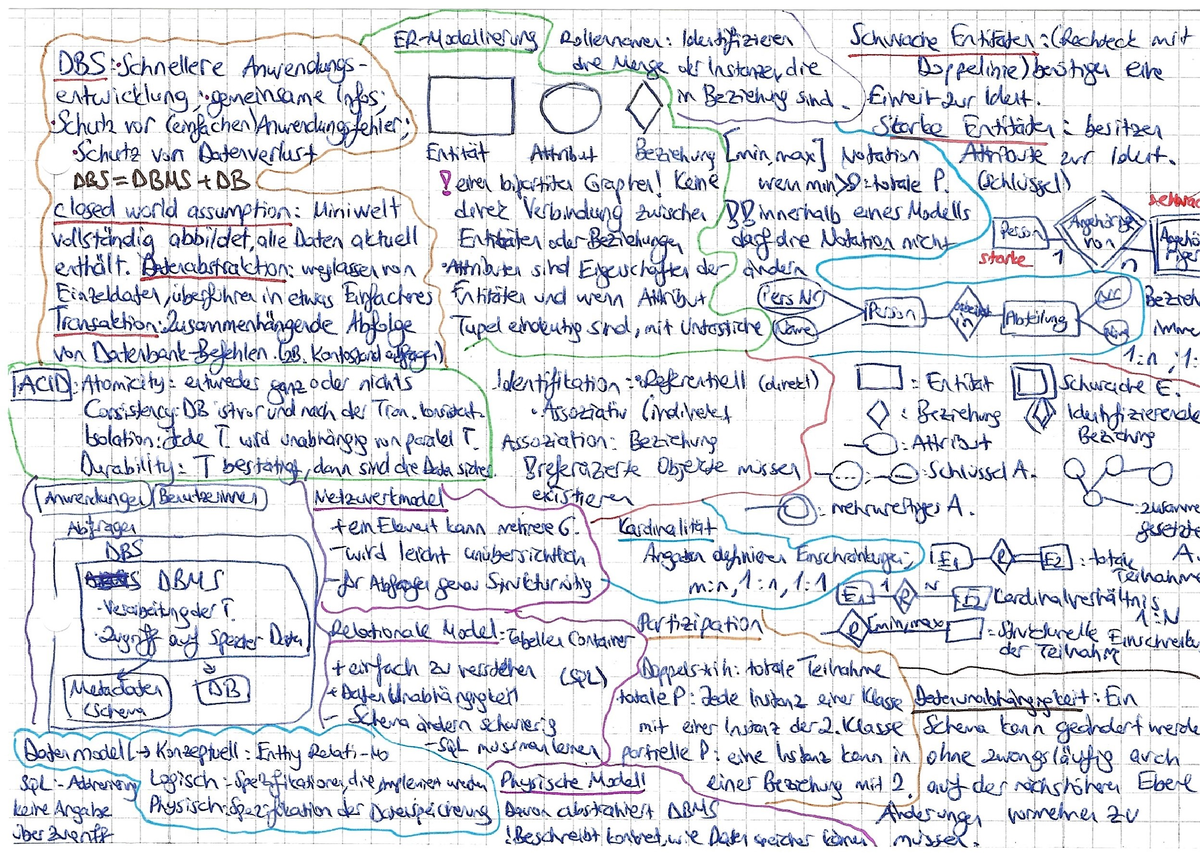 DBS: ·Schnellere Anwendungs-
entwicklung; ·gemeinsame Infos;
·Schutz vor (einfachen) Anwendungsfehler;
·Schutz von Datenverlust
DBS = DBMS + DB
closed world assumption: Miniwelt
vollständig abbildet, alle Daten aktuell
enthält. Datenabstraktion: weglassen von
Einzeldaten, überführen in etwas Einfacheres
Transaktion: Zusammenhängende Abfolge
von Datenbank-Befehlen. (zB. Kontostand abfragen)
ACID: Atomicity: entweder ganz oder nichts
Consistency: DB ist vor und nach der Tran. konsistent.
Isolation: Jede T. wird unabhängig von parallel T.
Durability: T bestätigt, dann sind die Data sicher
Anwendungen Benutzerinnen
Abfragen
DBS
DBMS
-Verarbeitung der T.
-Zugriff auf Daten
Metadaten
(Schema
DB
Datenmodell → Konzeptuell: Entity Relati-Mo
Logisch: Spezifikationen, die implemen werden
Physisch: Spezifikation der Datenspeicherung
SQL -
keine Angabe
über Zugriff
ER-Modellierung
Entität Attribut Beziehung
! einen bipartiten Graphen! Keine
direk Verbindung zwischen
Entitäten oder Beziehungen
·Attributen sind Eigenschaften der
Entitäten und wenn Attribut
Tupel eindeutig sind, mit Unterstriche
Rollennamen: Identifizieren
die Menge der Instanzen, die
in Beziehung sind.
[min,max] Notation
wenn min>0: totale P.
!! innerhalb eines Modells
darf die Notation nicht
ändern
Schwache Entitäten: (Rechteck mit
Doppelinie) benötigen eine
Einheit zur Ident.
Starke Entitäten: besitzen
Attribute zur Ident.
(Schlüssel)
schwach
Person Angehör von
starke 1 n
Pers Nr
Name
Person arbeitet in Abteilung
Nr
Bezieh
imme
1:n, 1:
Identifikation: ·Referentiell (direkt)
·Assoziativ (indirekt
Assoziation: Beziehung
! referenzierte Objekte müssen
existieren
: Entität
Schwache E.
: Beziehung
Identifizierende
Beziehung
: Attribut
: Schlüssel A.
: mehrwertiges A.
: zusamme
gesetzte
A.
Netzwerkmodel
+ ein Element kann mehrere G.
- wird leicht unübersichtlich
- für Abfragen genau Struktur nötig
Kardinalität
Angaben definieren Einschränkungen;
m:n, 1:n, 1:1
E1 R E2 : totale
Teilnahme
E1 1 R N E2 Kardinalverhältnis
1:N
R (min,max) : Strukturelle Einschränku
der Teilnahme
Relationale Model: Tabellen Container
+ einfach zu verstehen (SQL)
+ Daten Unabhängigkeit
- Schema ändern schwierig
- SQL muss man lernen
Partizipation
Doppelstrich: totale Teilnahme
totale P: Jede Instanz einer Klasse
mit einer Instanz der 2. Klasse
partielle P: eine Instanz kann in
einer Beziehung mit 2.
Physische Modell
Davon abstrahiert DBMS
! Beschreibt konkret, wie Daten speicher können
Datenunabhängigkeit: Ein
Schema kann geändert werde
ohne zwangsläufig auch
auf der nächsthöheren Ebene
Änderungen vornehmen zu
müssen.